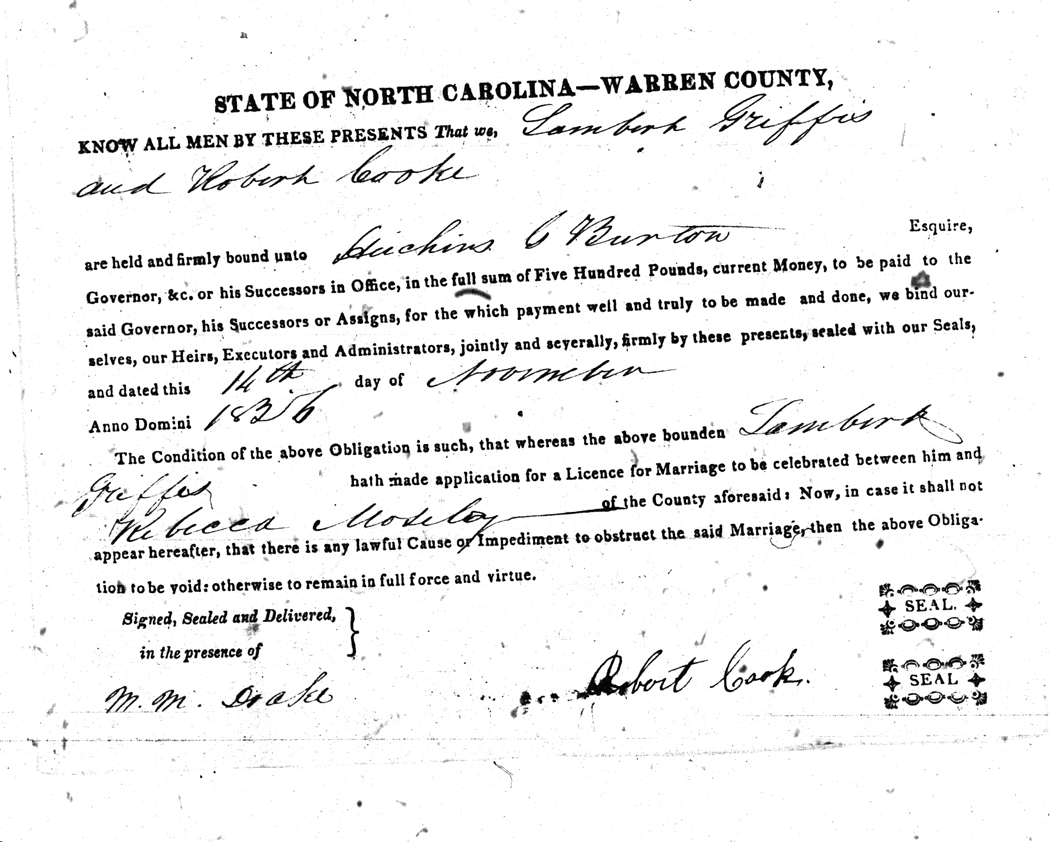 STATE OF NORTH CAROLINA—WARREN COUNTY,
KNOW ALL MEN BY THESE PRESENTS That we, Lambert Griffis
and Robert Cooke
are held and firmly bound unto Hutchins G Burton Esquire,
Governor, &c. or his Successors in Office, in the full sum of Five Hundred Pounds, current Money, to be paid to the
said Governor, his Successors or Assigns, for the which payment well and truly to be made and done, we bind our-
selves, our Heirs, Executors and Administrators, jointly and severally, firmly by these presents, sealed with our Seals,
and dated this 14th day of November
Anno Domini
The Condition of the above Obligation is such, that whereas the above bounden Lambert
Griffis hath made application for a Licence for Marriage to be celebrated between him and
Rebecca Moseley of the County aforesaid: Now, in case it shall not
appear hereafter, that there is any lawful Cause or Impediment to obstruct the said Marriage, then the above Obliga-
tion to be void: otherwise to remain in full force and virtue.
Signed, Sealed and Delivered,
in the presence of
M. M. Drake
Robert Cook.
SEAL.
SEAL